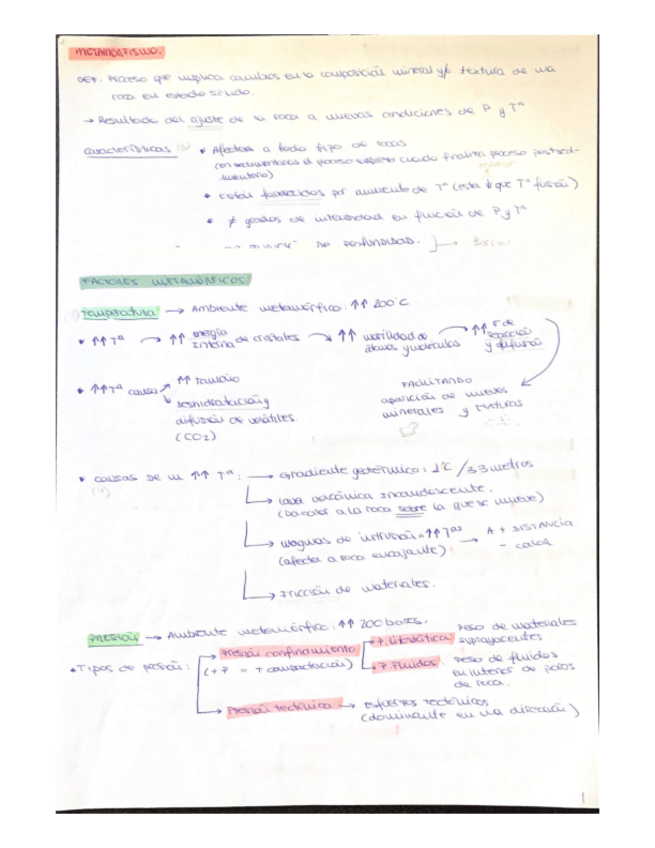 METAMORFISMO.
DEF: Proceso que implica cambios en la composición mineral y/o textura de una
roca en estado sólido.
→ Resultado del ajuste de la roca a nuevas condiciones de P y Tª
Características • Afectan a todo tipo de rocas
(en sedimentarias el proceso cuando finaliza proceso postsedi-
mentario)
• Están favorecidos por aumento de Tª (esta ↓ que Tª fusión)
• ≠ grados de intensidad en función de P y Tª
PROFUNDIDAD. }→
FACTORES METAMÓRFICOS
Temperatura → Ambiente metamórfico: ↑↑ 200°C
• ↑↑ Tª → ↑↑ energía interna de cristales → ↑↑ movilidad de átomos y moléculas → ↑↑ r de reacción y difusión
• ↑↑ Tª causa → ↑↑ tamaño
↳ deshidratación y
difusión de volátiles.
(CO2)
FACILITANDO
aparición de nuevos
minerales y texturas
• CAUSAS DE UN ↑↑ Tª: → Gradiente geotérmico: 1°C / 33 metros
↳ Lava volcánica incandescente.
(Da calor a la roca sobre la que se mueve)
↳ Magmas de intrusión = ↑↑ Tas → A + DISTANCIA
(afecta a roca encajante) - calor
↳ Fricción de materiales.
PRESIÓN → Ambiente metamórfico: ↑↑ 200 bares.
• Tipos de presión: → Presión confinamiento → P. litostática Peso de materiales
suprayacentes
(+ P = + compactación) → P Fluidos. Peso de fluidos
en interior de poros
de roca.
↳ Presión tectónica → esfuerzos tectónicos
(dominante en una dirección)
1